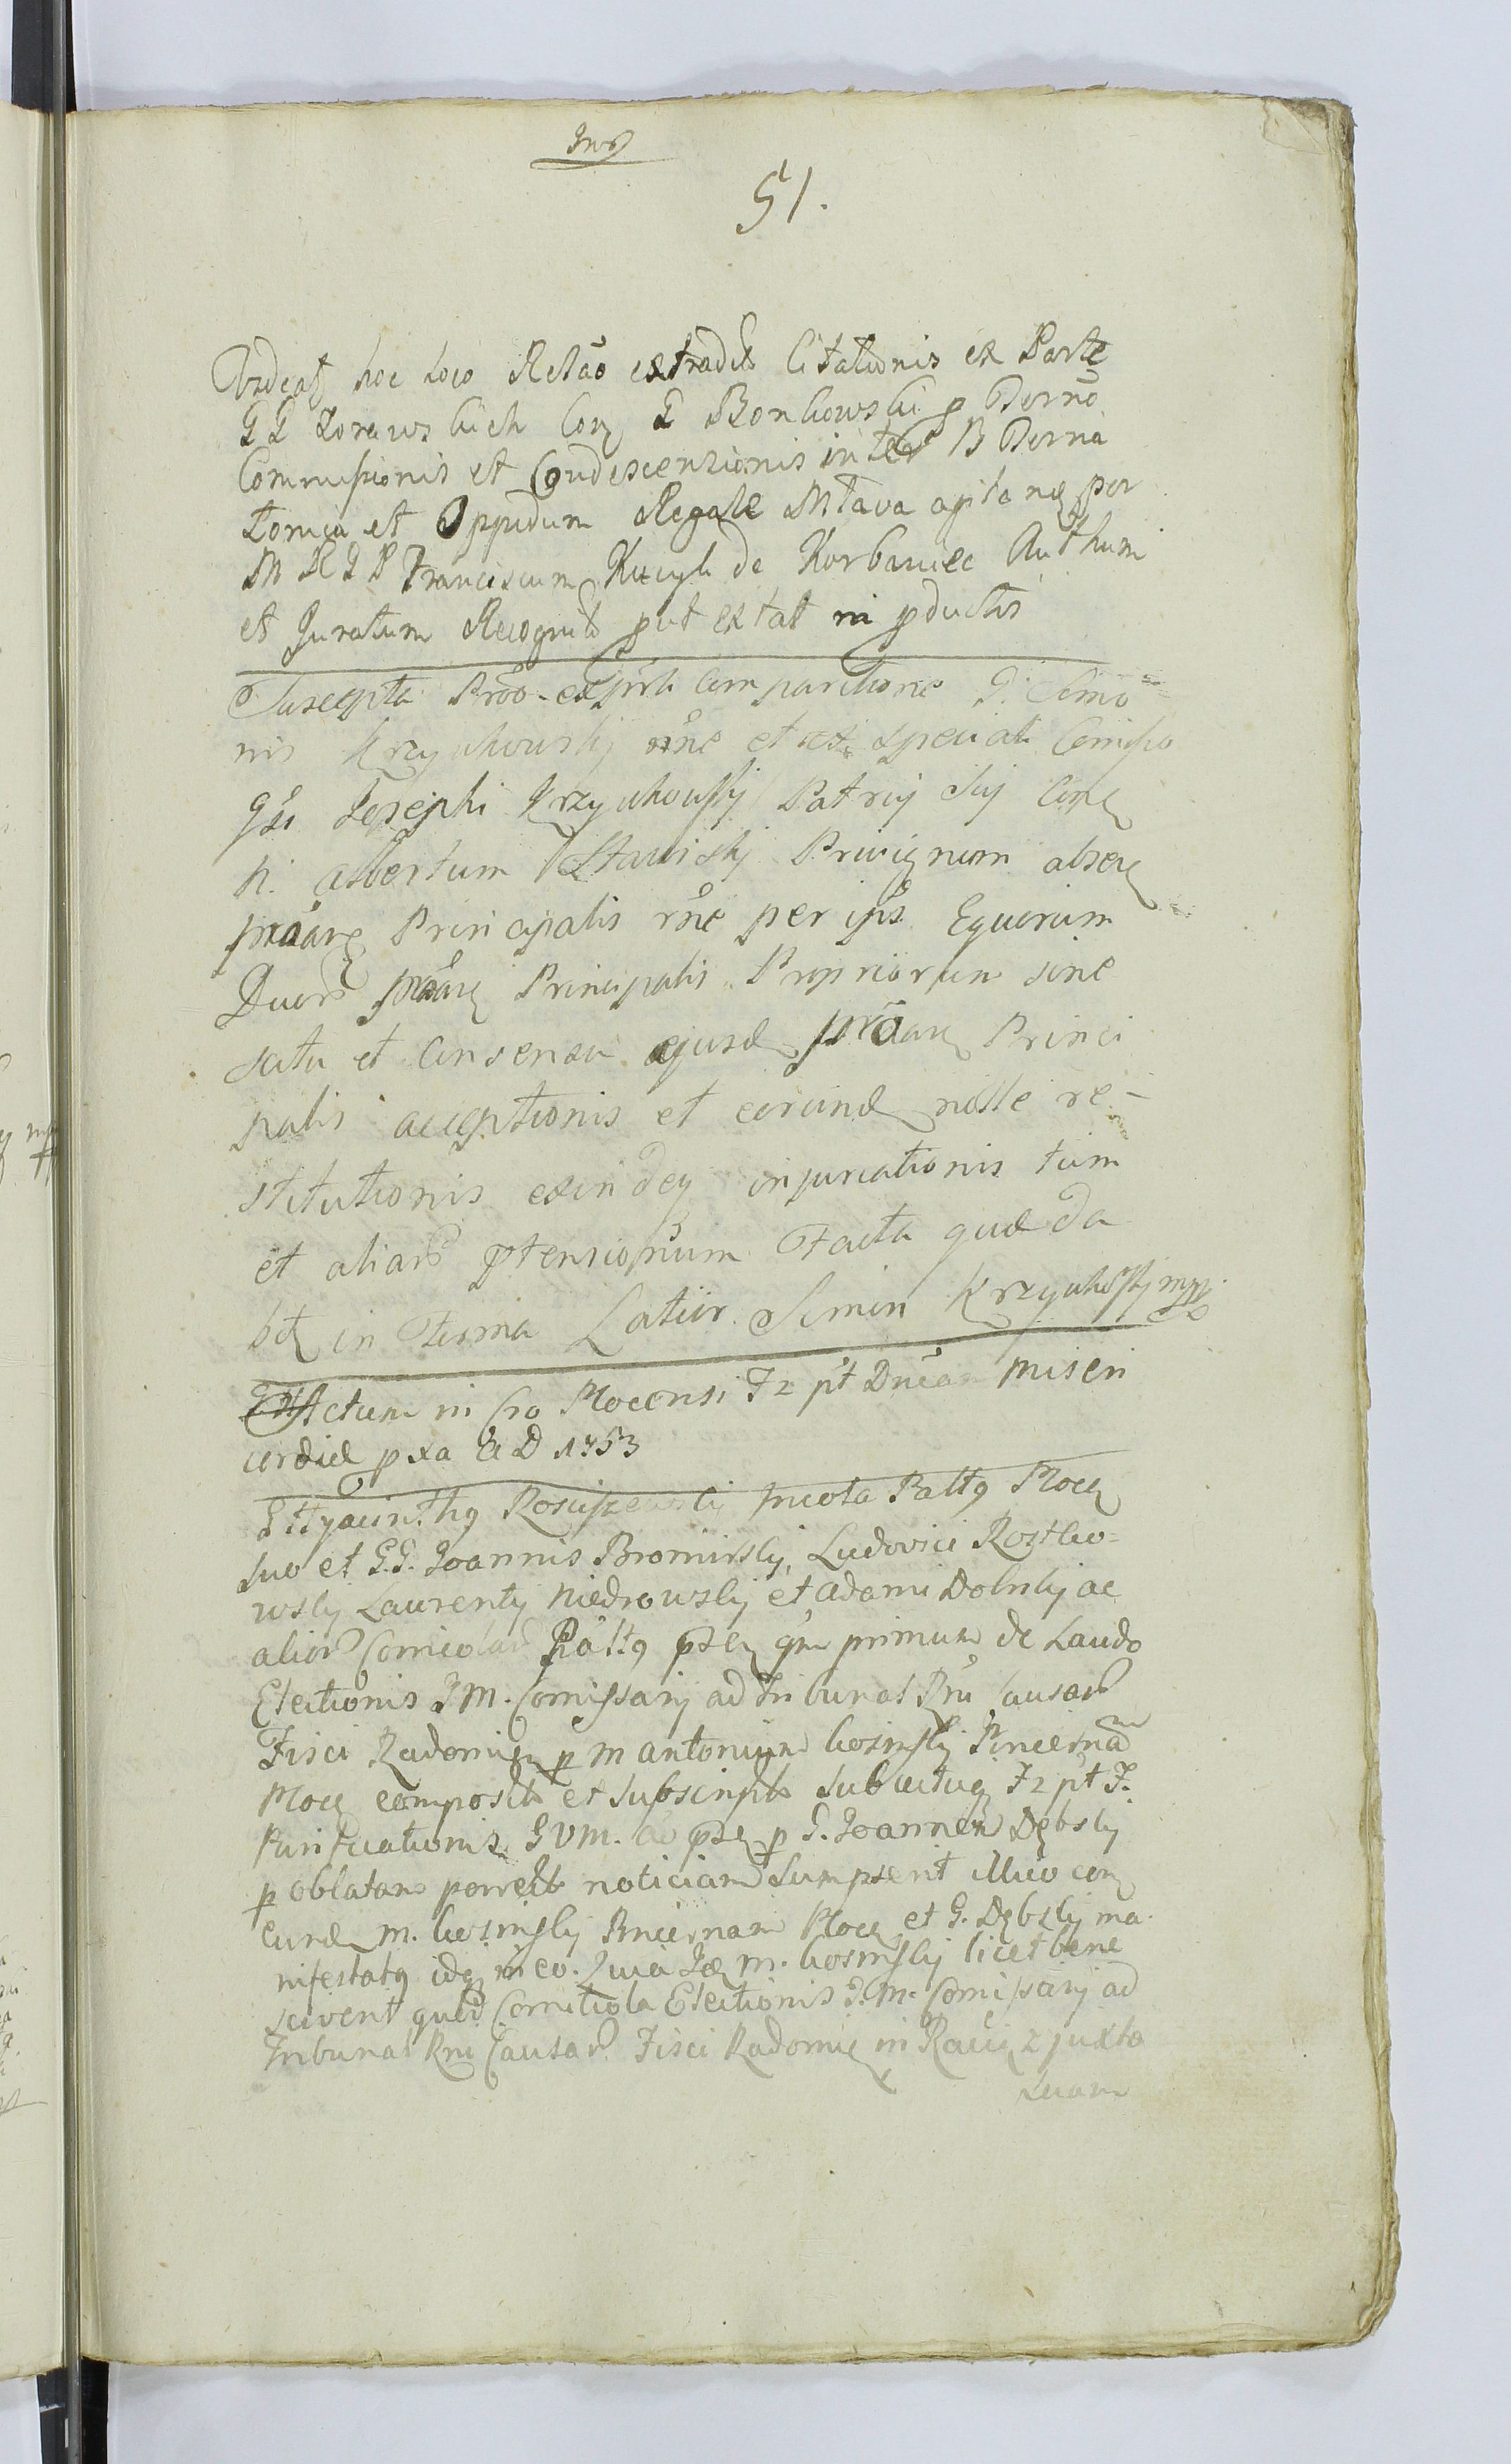 51.
Videatʒ hoc loco Relão extradit̃ Citationis ex Parte
G G Zorawskich Con̨ G Bonkowski p Term̃o
Commissionis et Condescensionis inter B Terna
Tonica et Oppidum Regale Mlava apitanę per
M R I P Franciscum Kucyk de Korbaniec Authum
et Juratum Recognit̃ put extat in pductis
Suscepta Prõõ expssa Comparitione G. Simo
nis Krzyukowsky nñe et ex speciali Comiss̃o
Gsi Josephi Krzyukowsky Patrij Sui Con̨
N. Albertum Stawisky Privignum absen̨
prõan̨ Principalis rñe per ips̃ Equorum
Duor̃ prõan̨ Principalis Propriorum sine
scitu et Consensu ejusd̨ prõan̨ Princi
palis acceptionis et eorund̨ nolle re-
stitutionis exindeq̨ injuriationis tum
et aliar̃ ptensionum Facta quæ da
bt̨ in Forma Latior. Simon Krzyukowsky mpp
Actum in Cro Plocensi F2 pt Dñcam Miseri
cordiæ pxa A D 1753
G Hyacinthq Rosciszewski Incola Palltq Plocę
suo et G.G. Joannis Bromirsky, Ludovici Rostko=
wsky Laurenty Niedrowsky et Adami Dolnky ac
alior̃ Comicolar̃ Palltq psen̨ qm primum de Laudo
Electionis I M. Comissarij ad Tribunal Rni Causar̃
Fisci Radomien̨ p M Antonium Cosinsky Pincernam
Plocę composit̃ et subscript̃ sub actuq̨ F2 pt F.
Purificationis BVM. ac psen̨ p G. Joannem Dębsky
p oblatam porrect̃ noticiam sumpserit illico con̨
eund̨ M. Cosinsky Pincernam Plocę et G. Dębsky ma
nifestatq idq̨ in eo. Quia Idę M. Cosinsky licet bene
scivent quod Comitiola Electionis I. M. Comissarij ad
Tribunal Rni Causar̃ Fisci Radomię in Raciąz juxta
suam